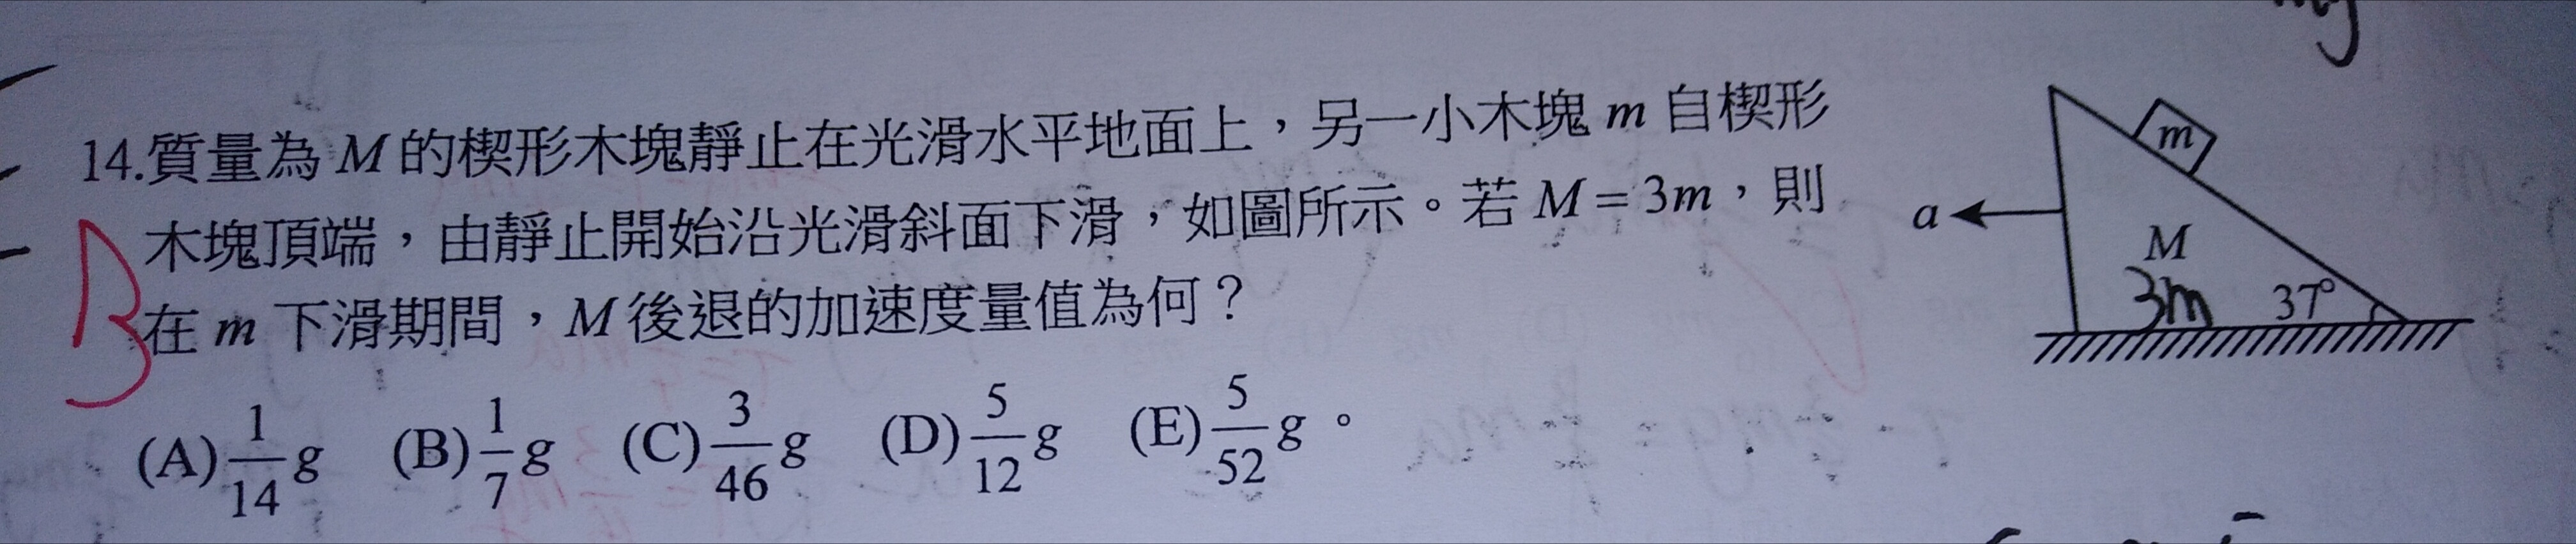 mg
14.質量為 M 的楔形木塊靜止在光滑水平地面上，另一小木塊 m 自楔形
木塊頂端，由靜止開始沿光滑斜面下滑，如圖所示。若 M = 3m，則
在 m 下滑期間，M 後退的加速度量值為何？
B
(A) 1/14 g (B) 1/7 g (C) 3/46 g (D) 5/12 g (E) 5/52 g。
m
a
M
3m
37°